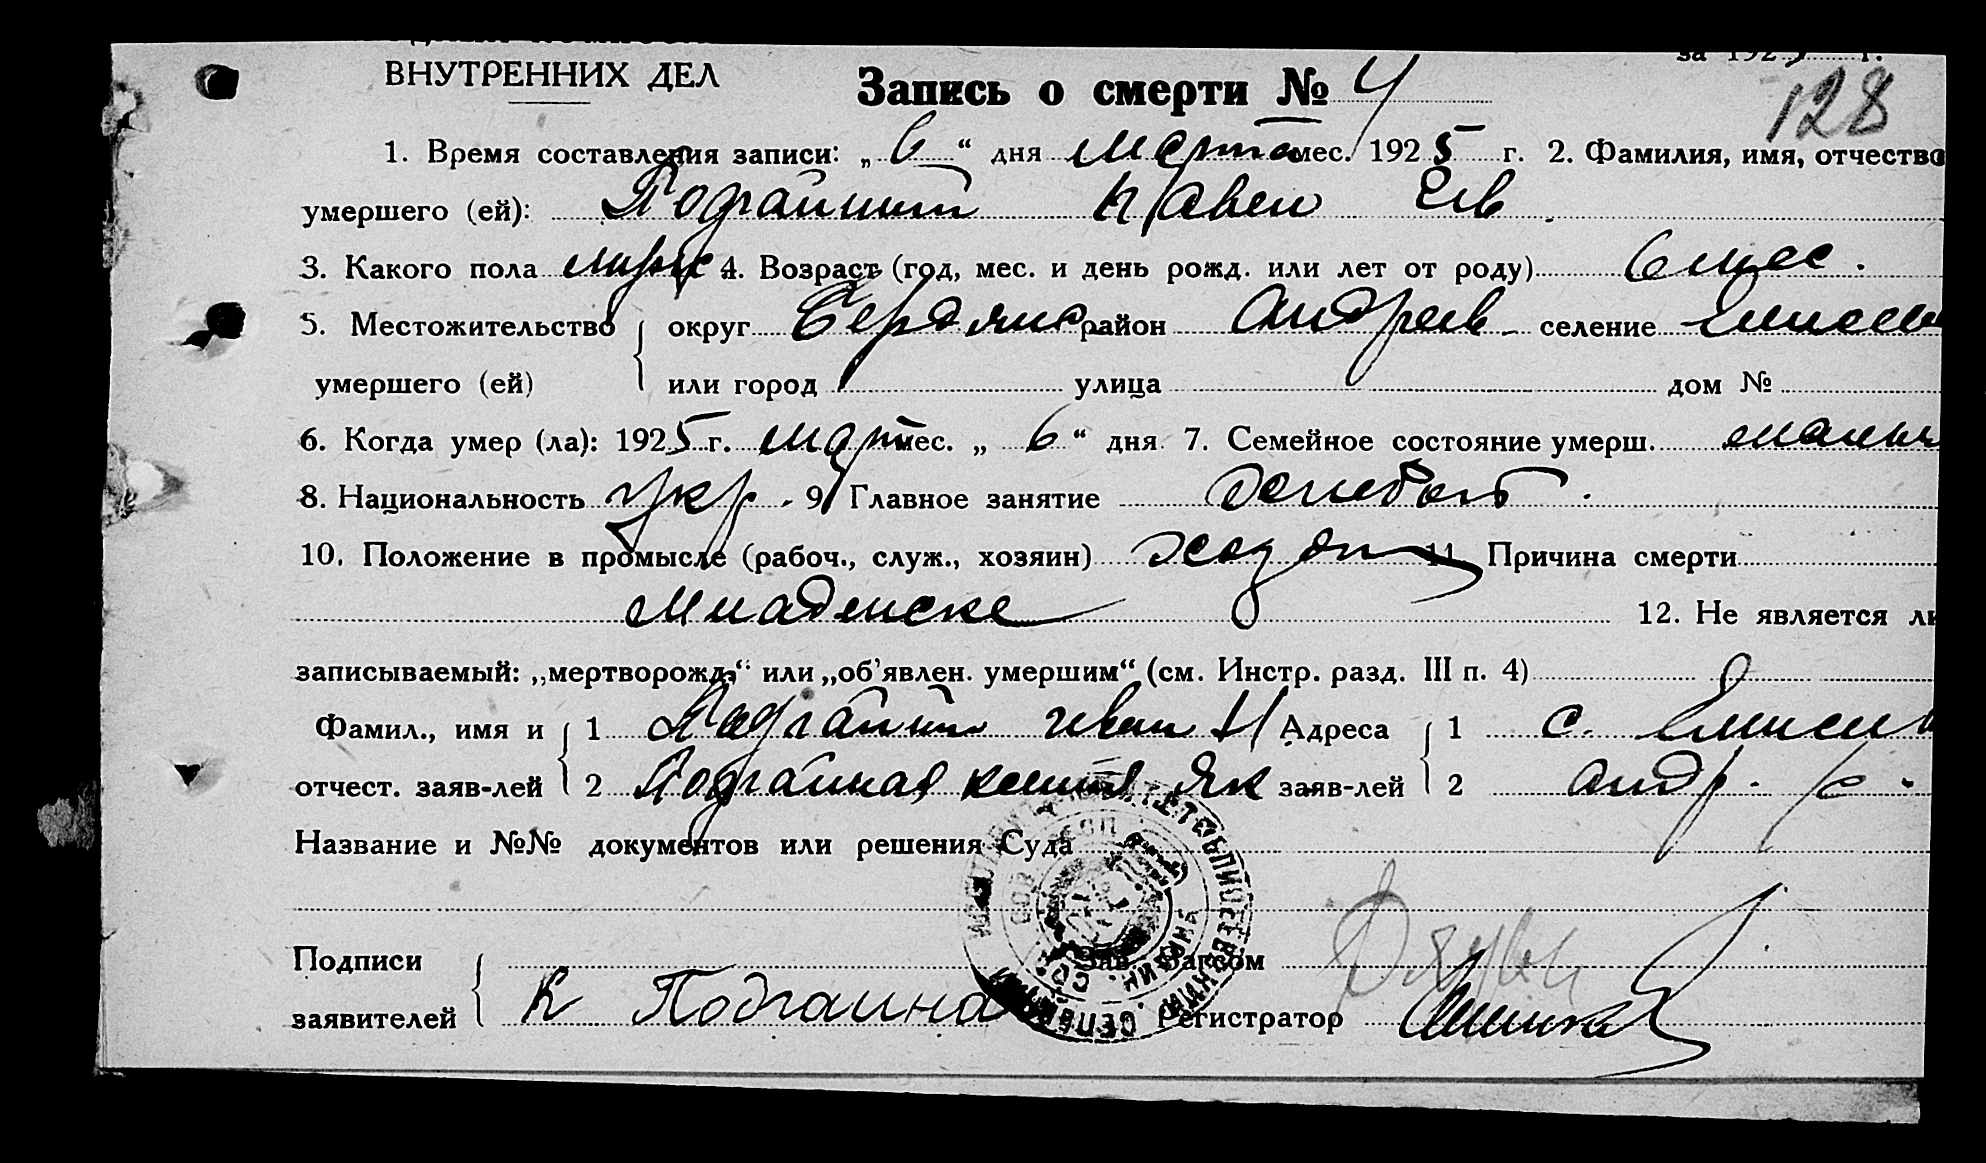 ВНУТРЕННИХ ДЕЛ
за 1925 г.
Запись о смерти № 4
128
1. Время составления записи: „ 6 “ дня марта мес. 1925 г. 2. Фамилия, имя, отчество
умершего (ей): Подгайний Павел Ив
3. Какого пола мужс 4. Возраст (год, мес. и день рожд. или лет от роду) 6 мес.
5. Местожительство округ Бердянс район Андреев селение Елисеев
умершего (ей) или город улица дом №
6. Когда умер (ла): 1925 г. март мес. „ 6 “ дня 7. Семейное состояние умерш.
8. Национальность укр. 9 Главное занятие хлебоб.
10. Положение в промысле (рабоч., служ., хозяин) хозяин 11 Причина смерти
Младенске 12. Не является ли
записываемый: „мертворожд.“ или „об’явлен. умершим“ (см. Инстр. разд. III п. 4)
Фамил., имя и 1 Подгайний Иван Адреса 1 с. Елисеив
отчест. заяв-лей 2 Подгайная Як заяв-лей 2 андр. р.
Название и №№ документов или решения Суда
Подписи Зав. Загсом
заявителей К Подгаина Регистратор